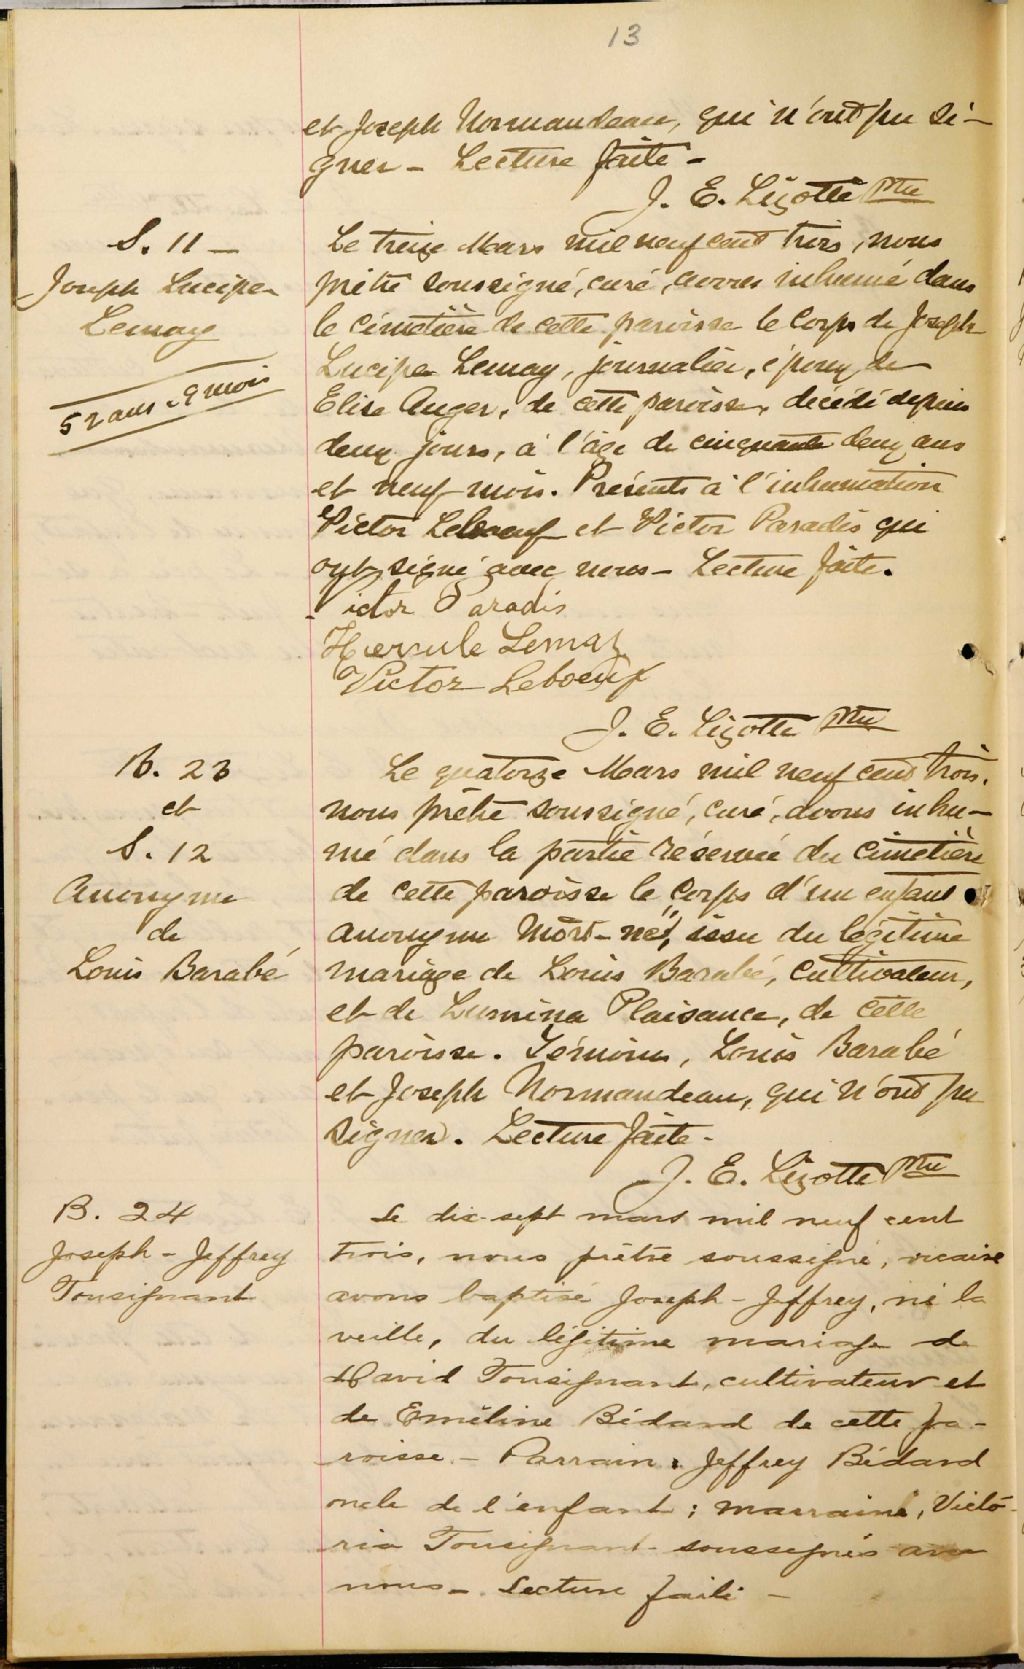 13
et Joseph Normandeau, qui n'ont pu si-
gner - Lecture faite -
J. E. Lizotte Ptre
S. 11 -
Joseph Lucipe
Lemay
52 ans . 9 mois
Le treize Mars mil neuf cent trois, nous
prêtre soussigné, curé, avons inhumé dans
le cimetière de cette paroisse le corps de Joseph
Lucipe Lemay, journalier, époux de
Elise Auger, de cette paroisse, décédé depuis
deux jours, à l'âge de cinquante deux ans
et neuf mois. Présents à l'inhumation
Victor Leboeuf et Victor Paradis qui
ont signé avec nous - Lecture faite.
Victor Paradis
Hercule Lemay
Victor Leboeuf
J. E. Lizotte Ptre
B. 23
et
S. 12
Anonyme
de
Louis Barabé
Le quatorze Mars mil neuf cent trois,
nous prêtre soussigné, curé, avons inhu-
mé dans la partie réservée du cimetière
de cette paroisse le corps d'un enfant
anonyme mort-né, issu du légitime
mariage de Louis Barabé, cultivateur,
et de Lumina Plaisance, de cette
paroisse. Témoins, Louis Barabé
et Joseph Normandeau, qui n'ont pu
signer. Lecture faite -
J. E. Lizotte Ptre
B. 24
Joseph - Jeffrey
Tousignant
Le dix-sept mars mil neuf cent
trois, nous prêtre soussigné, vicaire
avons baptisé Joseph - Jeffrey, né la
veille, du légitime mariage de
David Tousignant, cultivateur et
de Eméline Bédard de cette pa-
roisse - Parrain, Jeffrey Bédard
oncle de l'enfant ; marraine, Victo-
ria Tousignant soussignés avec
nous - Lecture faite -